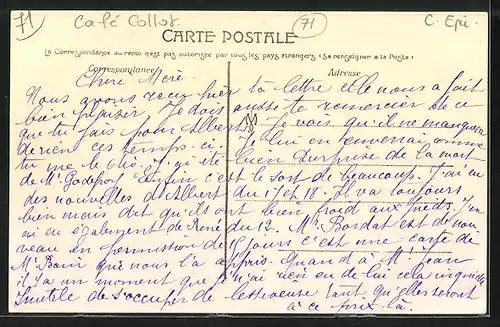 71 Café Collot. 71 C. Epi.
CARTE POSTALE
La Correspondance au recto n'est pas autorisée par tous les pays étrangers (Se renseigner à la Poste)
Correspondance Adresse
Chère Mère.
Nous avons reçu hier ta lettre elle nous a fait
bien plaisir. Je dois aussi te remercier de ce
que tu fais pour Albert. Je vois qu'il ne manquera
de rien ces temps-ci. Je lui en enverrai comme
tu me le dis. J'ai été bien surprise de la mort
de Mr Godefroy. Enfin c'est le sort de beaucoup. J'ai eu
des nouvelles d'Albert du 17 et 18. Il va toujours
bien mais dit qu'ils ont bien froid aux pieds. J'en
ai eu également de René du 12. Mr Bordat est de nou-
veau en permission de jours c'est une carte de
Mr qui nous l'a appris. Quand à Mr Jean
il y a un moment que je n'ai rien eu de lui cela m'inquiète
Inutile de s'occuper de lessiveuse tant qu'elles seront
à ce prix-là.